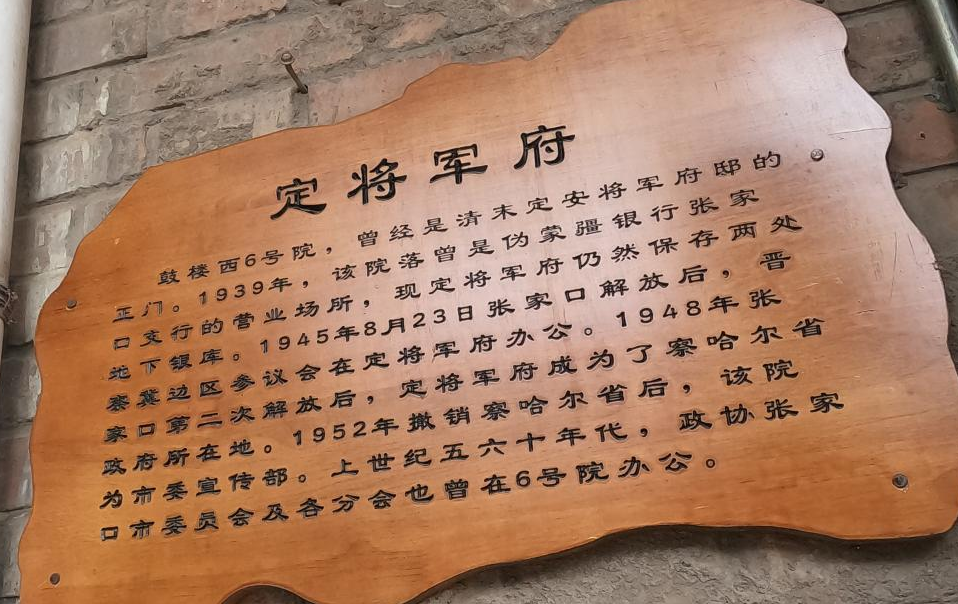 定将军府
鼓楼西6号院，曾经是清末定安将军府邸的
正门。1939年，该院落曾是伪蒙疆银行张家
口支行的营业场所，现定将军府仍然保存两处
地下银库。1945年8月23日张家口解放后，晋
察冀边区参议会在定将军府办公。1948年张
家口第二次解放后，定将军府成为了察哈尔省
政府所在地。1952年撤销察哈尔省后，该院
为市委宣传部。上世纪五六十年代，政协张家
口市委员会及各分会也曾在6号院办公。